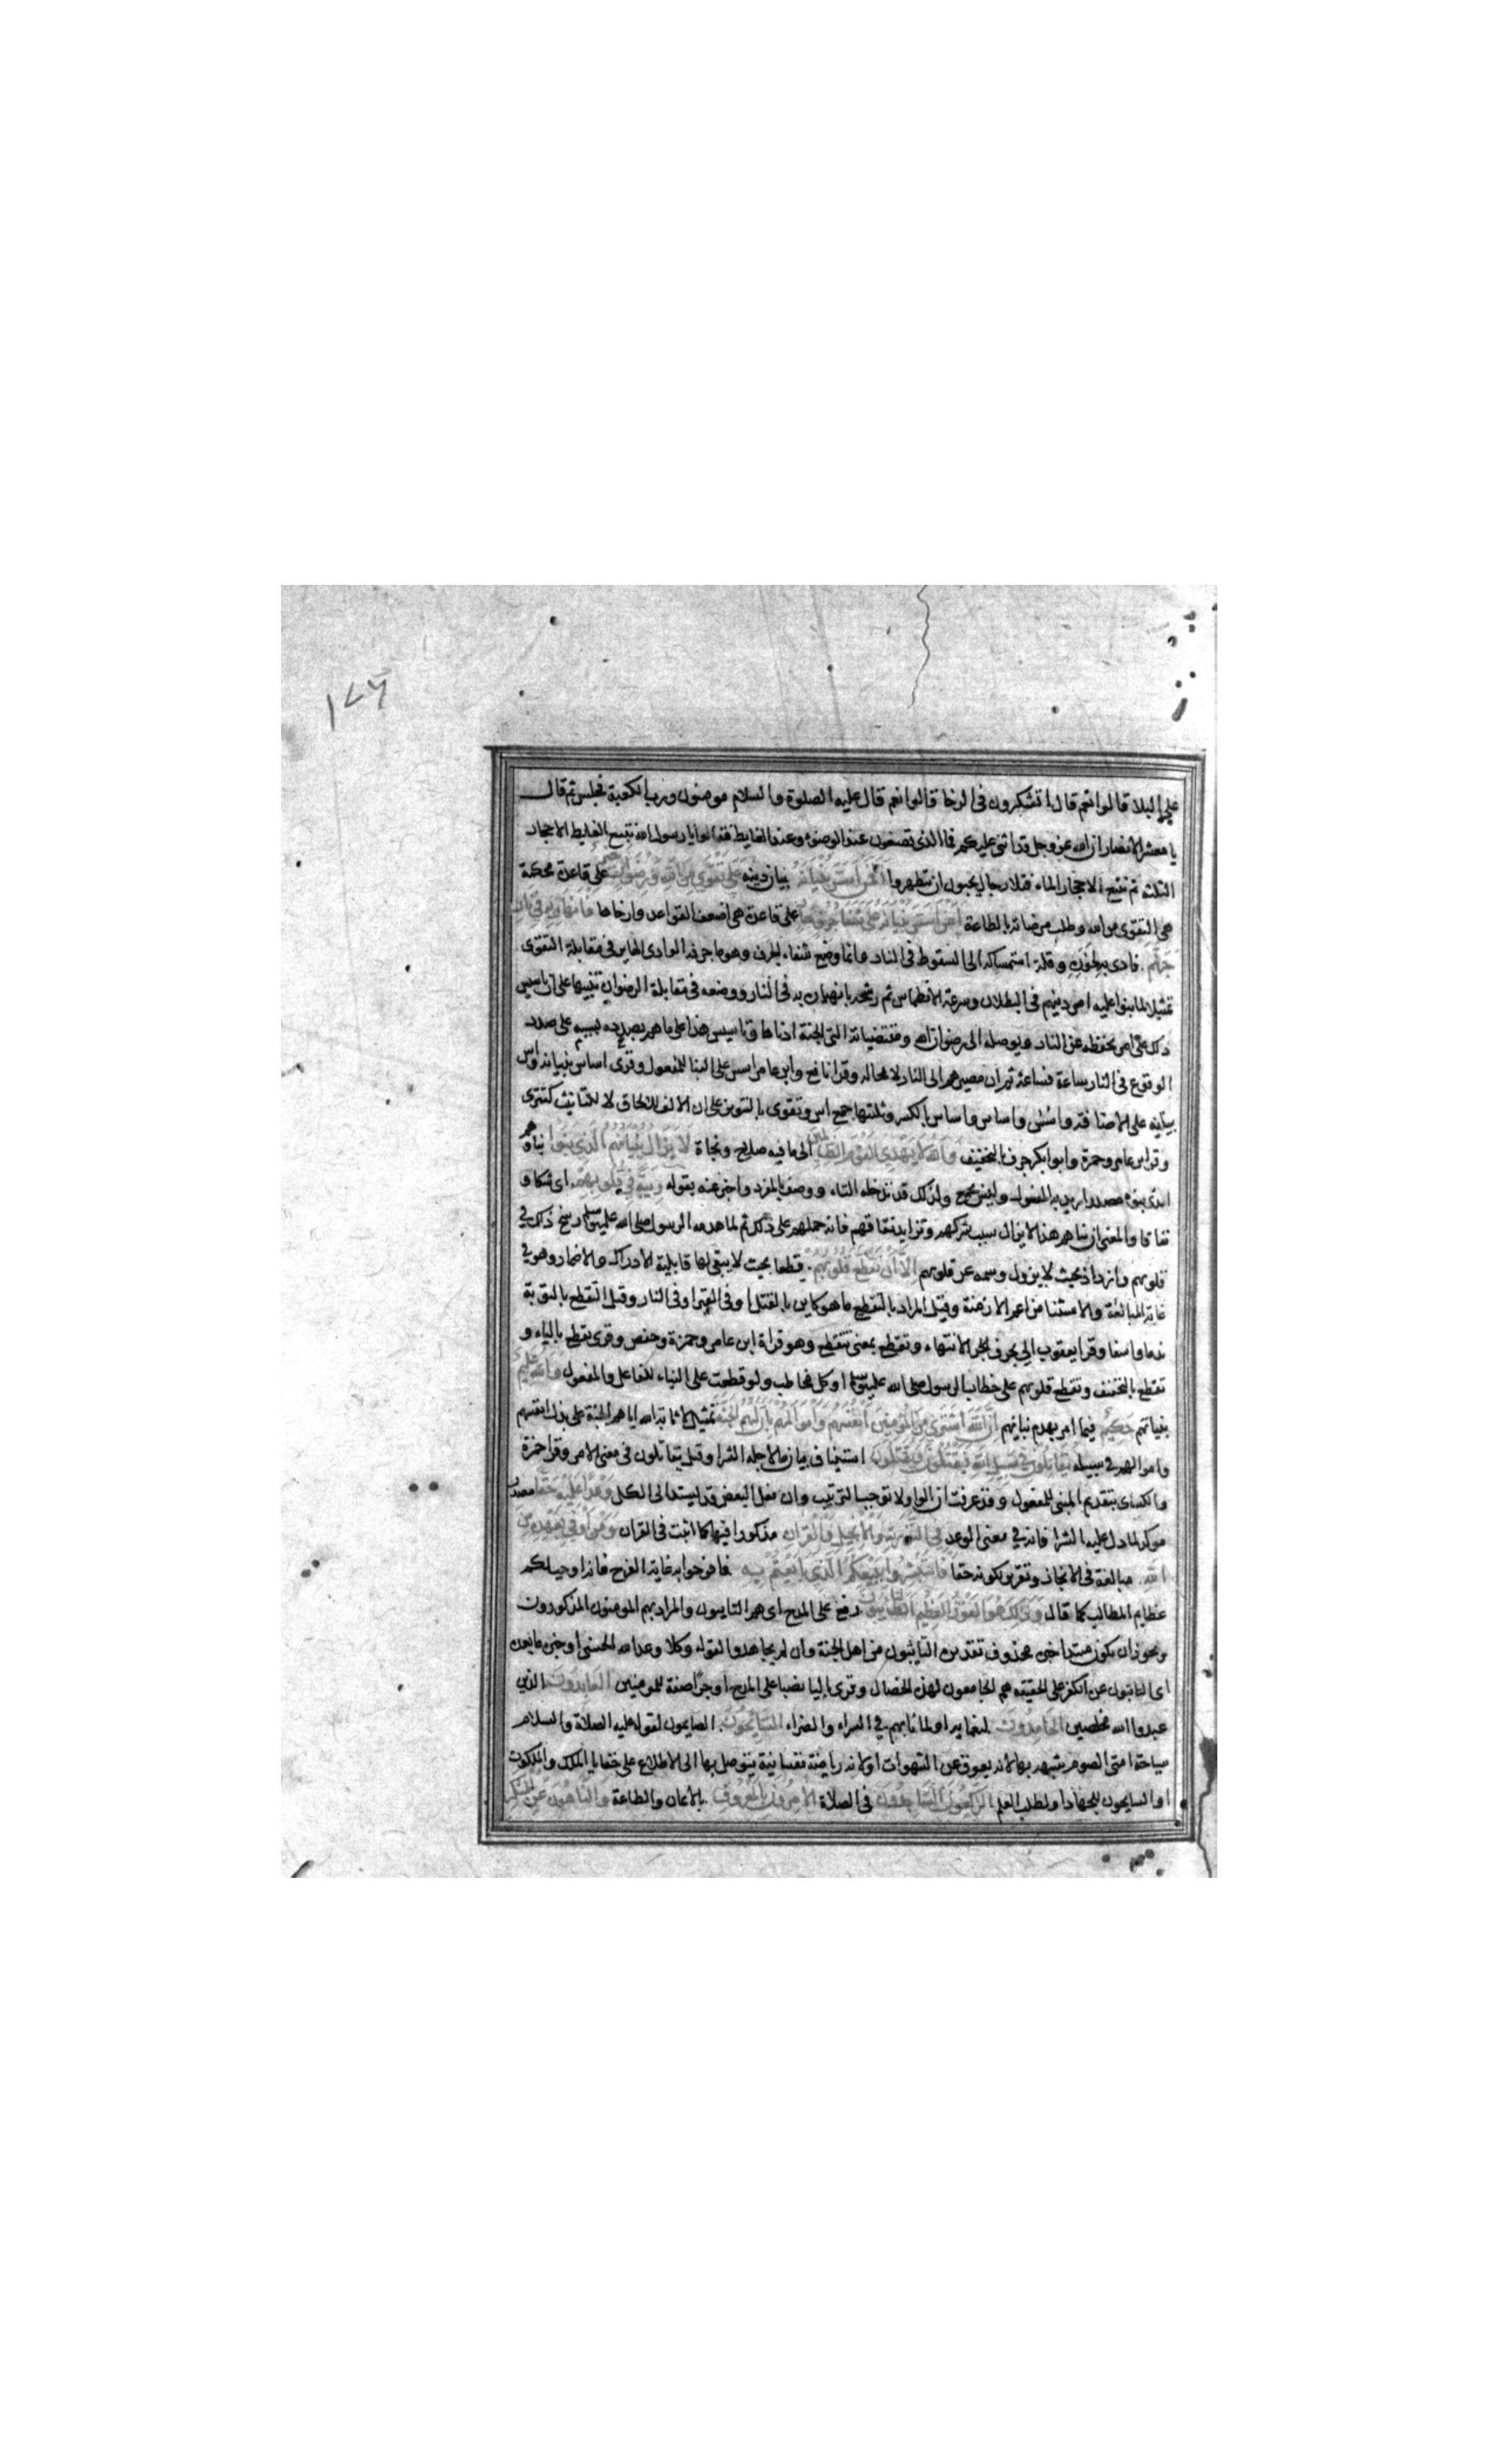 ١٧٦
على البلا قالوا نعم قال اتشكرون فى الرخا قالوا نعم قال عليه الصلوة والسلام مومنون ورب الكعبة فجلس ثم قال
يا معشر الانصار ان الله عز وجل قد اثنى عليكم فما الذى تصنعون عند الوضوء وعند الغايط فقالوا يا رسول الله نتبع الغايط الاحجار
الثلثة ثم نتبع الاحجار الماء فتلا رجال يحبون ان يتطهروا افمن اسس بنيانه بنيان دينه على تقوى من الله ورضوان على قاعدة محكمة
هى التقوى من الله وطلب مرضاته بالطاعة ام من اسس بنيانه على شفا جرف هار على قاعدة هى اضعف القواعد وارخاها فانهار به فى نار
جهنم فادى به لخوره وقلة استمساكه الى السقوط فى النار وانما وضع شفاء الجرف وهو ما جرفه الوادى الهاير فى مقابلة التقوى
تمثيلا لما بنوا عليه امر دينهم فى البطلان وسرعة الانطماس ثم رشحه بانهياره به فى النار ووضعه فى مقابلة الرضوان تنبيها على ان تاسيس
ذلك على امر يحفظه عن النار ويوصله الى رضوان الله ومقتضياته التى الجنة ادناها وتاسيس هذا على ما هم بصدده بسببه على صدد
الوقوع فى النار ساعة فساعة ثم ان مصيرهم الى النار لا محاله وقرا نافع وابن عامر اسس على البنا للمفعول وقرى اساس بنيانه واس
بنيانه على الاضافة واسُس واساس واساس بالكسر وثلثتها جمع اس وتقوى بالتنوين على ان الالف للالحاق لا للتانيث كتترى
وقرا ابن عامر وحمزة وابوابكر جرف بالتخفيف والله لا يهدى القوم الظالمين الى ما فيه صلاح ونجاة لا يزال بنيانهم الذى بنوا بناؤهم
الذى بنوه مصدر اريد به المفعول وليس بجمع ولذلك قد تدخله التاء ووصف بالمفرد واخبر عنه بقوله ريبة فى قلوبهم اى شكا و
نفاقا والمعنى ان بناهم هذا لا يزال سبب شركهم وتزايد نفاقهم فانه حملهم على ذلك ثم لما هدمه الرسول صلى الله عليه وسلم رسخ ذلك فى
قلوبهم وازداد بحيث لا يزول وسمه عن قلوبهم الا ان تقطع قلوبهم قطعا بحيث لا يبقى لها قابلية الادراك والاضمار وهو فى
غاية المبالغة والاستثنا من اعم الازمنة وقيل المراد بالتقطع ما هو كاين بالقتل او فى القبر او فى النار وقيل التقطع بالتوبة
ندما واسفا وقرا يعقوب الى بحرف الجر الانتهاء وتقطع بمعنى تتقطع وهو قراة ابن عامر وحمزة وحفص وقرى يقطع بالياء و
تقطع بالتخفيف وتقطع قلوبهم على خطاب الرسول صلى الله عليه وسلم او كل مخاطب ولو قطعت على البناء للفاعل والمفعول والله عليم
بنياتهم حكيم فيما امر بهدم بنيانهم ان الله اشترى من المؤمنين انفسهم واموالهم بان لهم الجنة تمثيل لاثابة الله اياهم الجنة على بذل انفسهم
واموالهم فى سبيله يقاتلون فى سبيل الله فيقتلون ويقتلون استيناف ببيان ما لاجله الشرا وقيل يقاتلون فى معنى الامر وقرا حمزة
والكساى بتقديم المبنى للمفعول وقد عرفت ان الواو لا توجب الترتيب وان فعل البعض قد يسند الى الكل وعدا عليه حقا مصدر
موكد لما دل عليه الشرا فانه فى معنى الوعد فى التورية والانجيل والقران مذكورا فيهما كما اثبت فى القران ومن اوفى بعهده من
الله مبالغة فى الانجاز وتقرير لكونه حقا فاستبشروا ببيعكم الذى بايعتم به فافرحوا به غاية الفرح فانه اوجب لكم
عظايم المطالب كما قال وذلك هو الفوز العظيم التائبون رفع على المدح اى هم التايبون والمراد بهم المومنون المذكورون
ويجوز ان يكون مبتدا خبره محذوف تقديره التايبون من اهل الجنة وان لم يجاهدوا لقوله وكلا وعد الله الحسنى او خبره ما بعده
اى التائبون عن الكفر على الحقيقه هم الجامعون لهذه الخصال وقرى باليا نصبا على المدح او جرا صفة للمومنين العابدون الذين
عبدوا الله مخلصين الحامدون لنعمايه او لما نابهم فى السراء والضراء السايحون الصايمون لقوله عليه الصلاة والسلام
سياحة امتى الصوم شبهه بها لانه يعوق عن الشهوات او لانه رياضة نفسانية يتوصل بها الى الاطلاع على خفايا الملك والملكوت
او السايحون للجهاد او لطلب العلم الراكعون الساجدون فى الصلاة الامرون بالمعروف بالايمان والطاعة والناهون عن المنكر